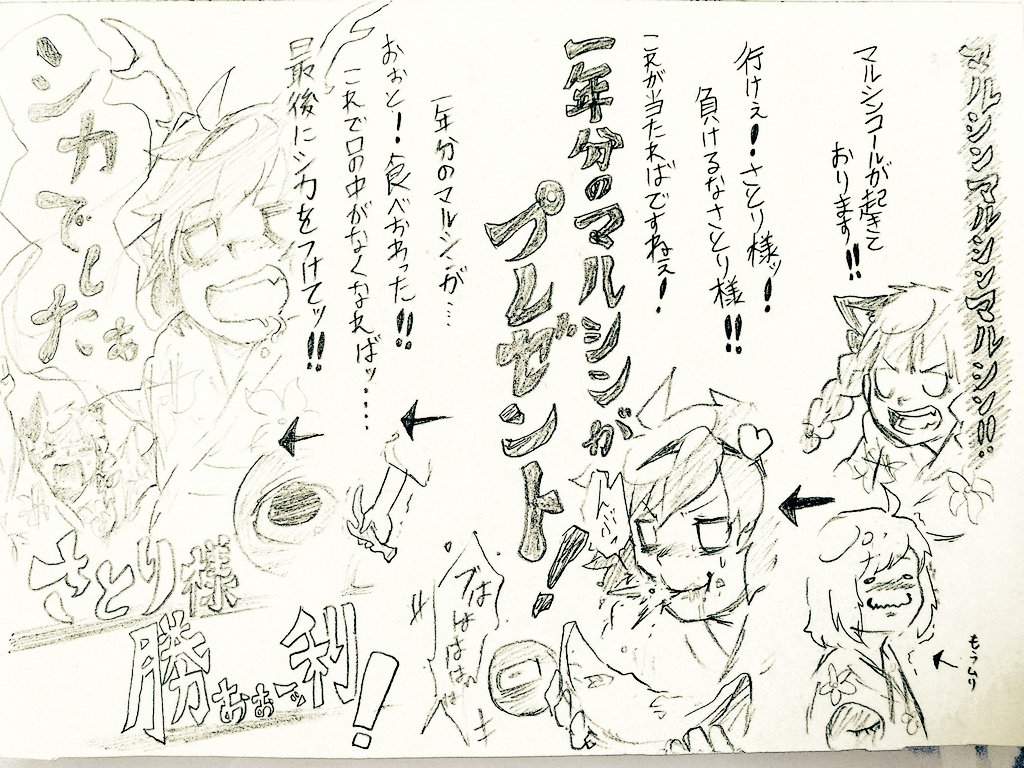 マルシンマルシンマルシン!!
マルシンコールが起きて
おります!!
行けぇ!さとり様ッ!
負けるなさとり様!!
これが当たればですねぇ!
一年分のマルシンが
プレゼント!
一年分のマルシンが…
おぉと!食べおわった!!
これで口の中がなくなればッ….
最後にシカをつけてッ!!
シカでしたぉ
もうムリ
ブははははは
さとり様
勝利!